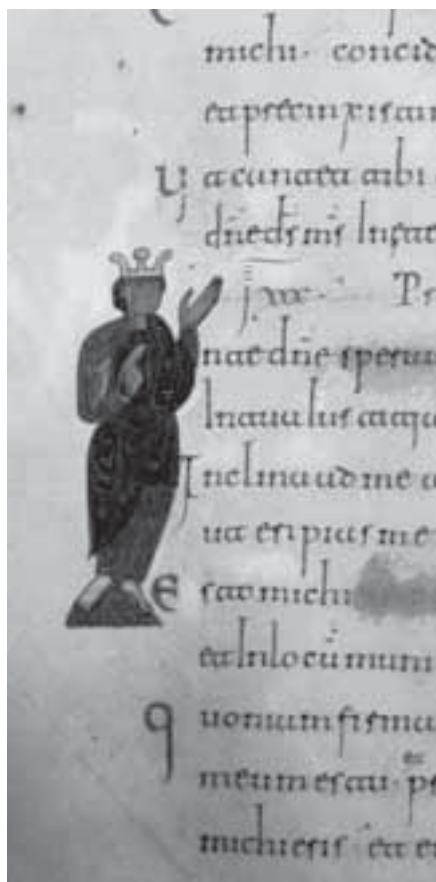 michi· concid
et precinxisti
Ut cantet tibi
dn̄e ds̄ ms̄ In et
xxx· Ps
n te dn̄e sperau
In tua ius atqu
Inclina ad me a
ut eripias me
Esto michi
et In locū muni
Quoniam firma
meum es tu· p
michi eris· et e